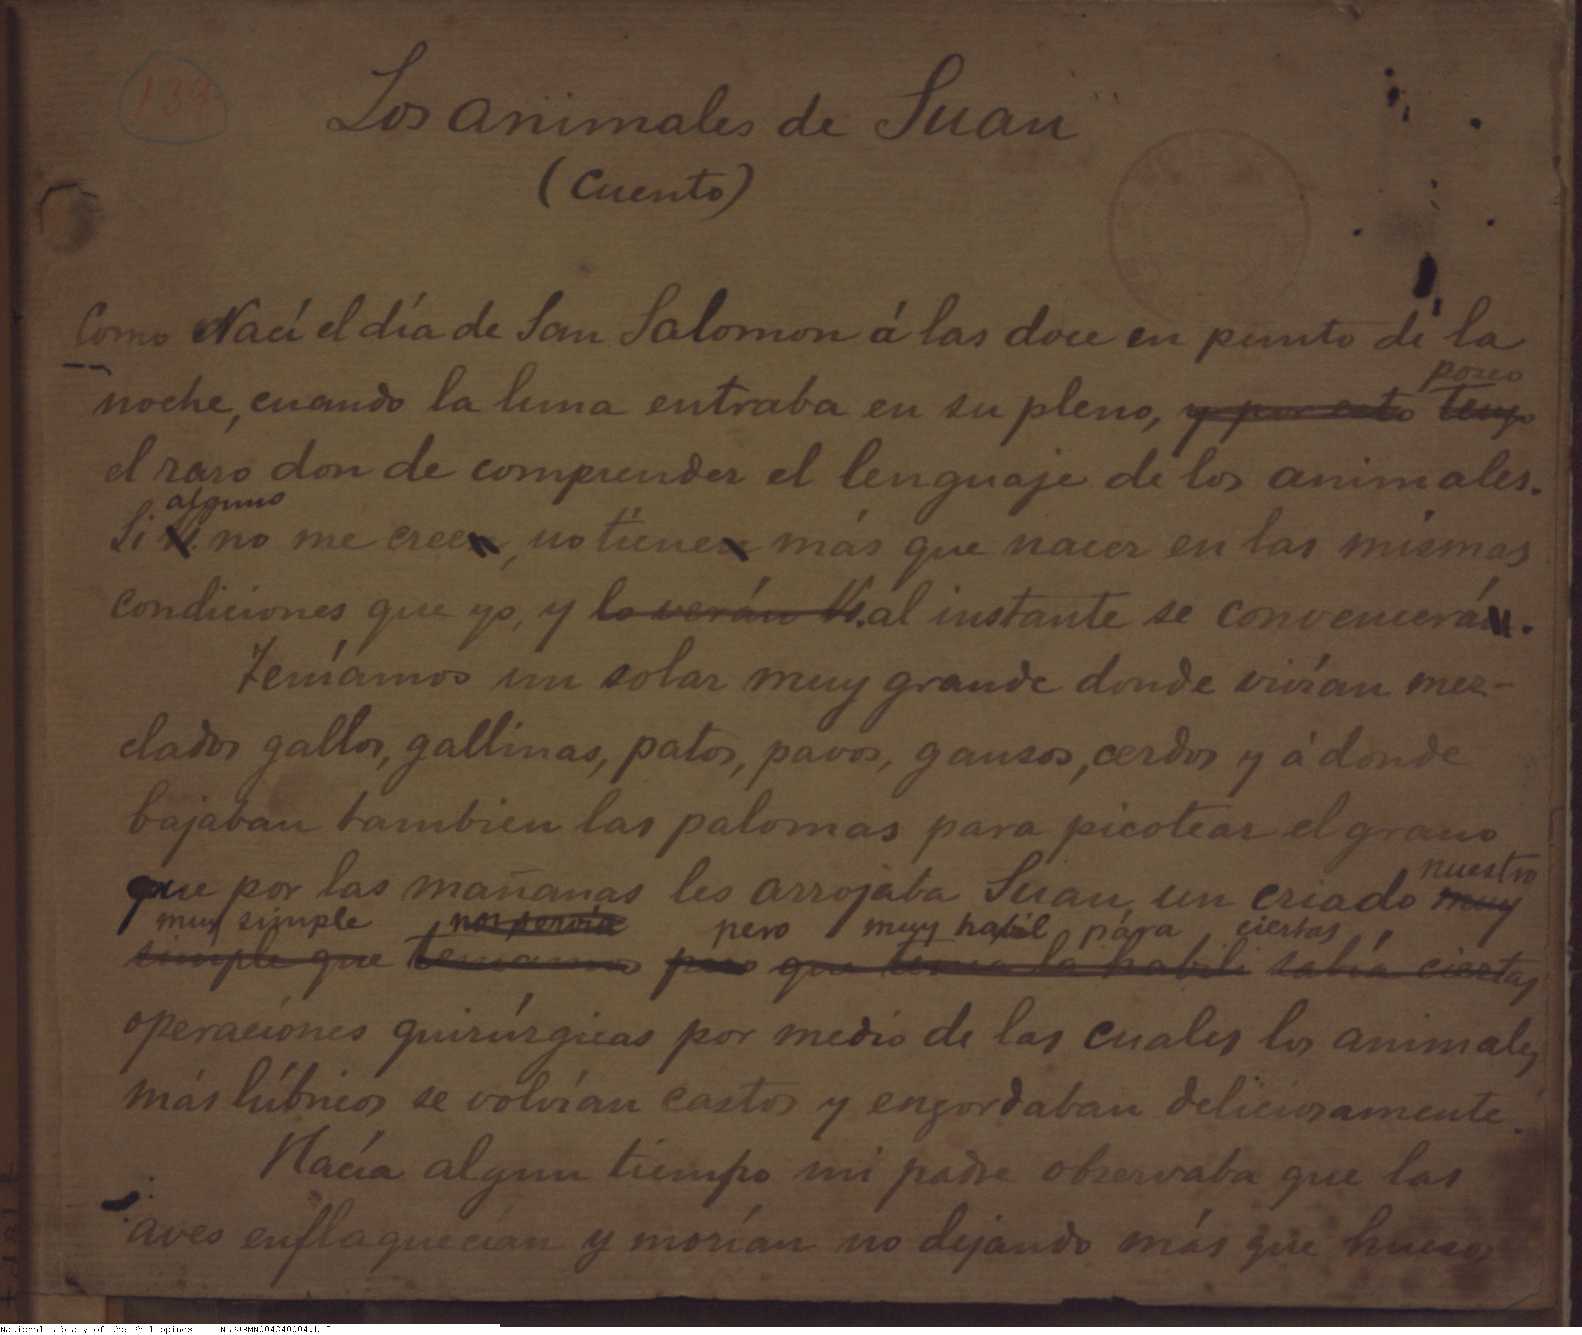 133
Los animales de Suan
(Cuento)
Como Nací el día de San Salomon á las doce en punto de la
poseo
noche, cuando la luna entraba en su pleno, y por esto tengo
el raro don de comprender el lenguaje de los animales.
alguno
Si Vs. no me creen, no tienen más que nacer en las mismas
condiciones que yo, y lo verán Vs. al instante se convencerán.
Teníamos un solar muy grande donde vivían mez-
clados gallos, gallinas, patos, pavos, gansos, cerdos y á donde
bajaban tambien las palomas para picotear el grano
nuestro
que por las mañanas les arrojaba Suan, un criado muy
muy simple nos servía pero muy habil para ciertas
simple que teniamos pero que tenia la habili sabía ciertas
operaciones quirúrgicas por medio de las cuales los animales
más lúbricos se volvían castos y engordaban deliciosamente.
Hacía algun tiempo mi padre observaba que las
aves enflaquecían y morían no dejando más que huesos
National Library of the Philippines